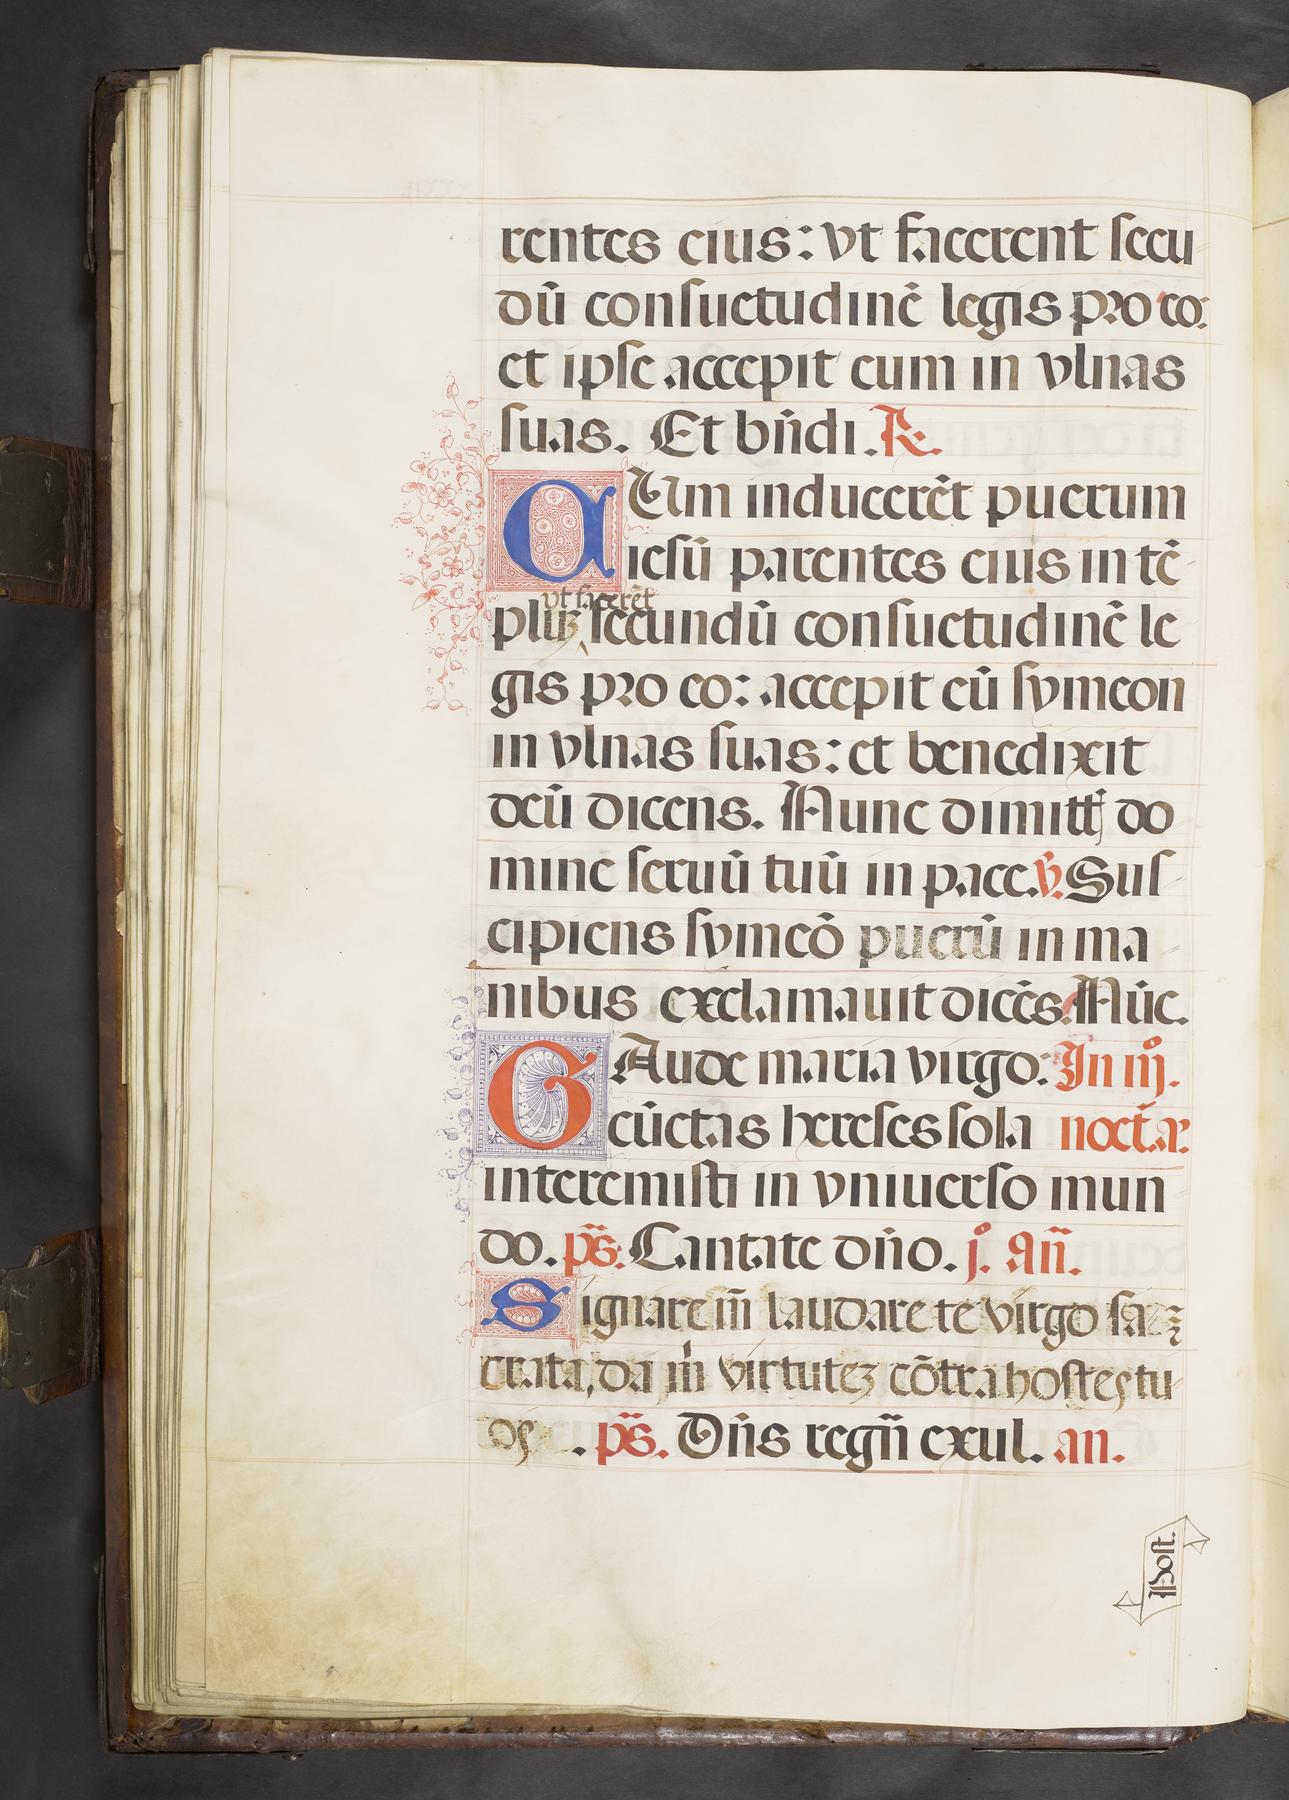 rentes eius: vt facerent secu
dū consuetudinē legis pro eo:
et ipse accepit eum in vlnas
suas. Et bn̄di. R.
CUm inducerēt puerum
iesū parentes eius in tē
plūz
vt facerēt
secundū consuetudinē le
gis pro eo: accepit eū symeon
in vlnas suas: et benedixit
deū dicens. Nunc dimittj do
mine seruū tuū in pace. v̄. Sus
cipiens symeō puerū in ma
nibus exclamauit dicēs. Nūc.
GAude maria virgo: In iij̊.
cūctas hereses sola noct̄ar
interemisti in vniuerso mun
do. ps̄. Cantate dn̄o. j̊. An̄.
Signare m̄ laudare te virgo sa
crata, da m̄ virtutez cōtra hostes tu
os. ps̄. Dn̄s regn̄ exul. an.
Post.